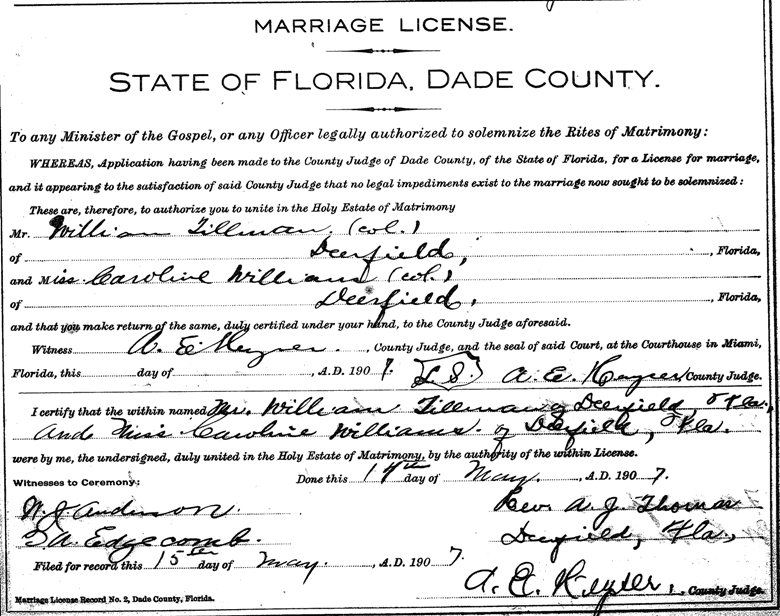 MARRIAGE LICENSE.
STATE OF FLORIDA, DADE COUNTY.
To any Minister of the Gospel, or any Officer legally authorized to solemnize the Rites of Matrimony:
WHEREAS, Application having been made to the County Judge of Dade County, of the State of Florida, for a License for marriage,
and it appearing to the satisfaction of said County Judge that no legal impediments exist to the marriage now sought to be solemnized:
These are, therefore, to authorize you to unite in the Holy Estate of Matrimony
Mr. William Tillman (col.)
of Deerfield, , Florida,
and Miss Caroline William (col.)
of Deerfield, , Florida,
and that you make return of the same, duly certified under your hand, to the County Judge aforesaid.
Witness A. E. Heyser , County Judge, and the seal of said Court, at the Courthouse in Miami,
Florida, this day of , A.D. 1907. L.S. A. E. Heyser County Judge.
I certify that the within named Mr. William Tillman of Deerfield, Fla.,
and Miss Caroline Williams of Deerfield, Fla.
were by me, the undersigned, duly united in the Holy Estate of Matrimony, by the authority of the within License.
Done this 14th day of May. , A.D. 1907.
Witnesses to Ceremony:
W. J. Anderson. Rev. A. J. Thomas
Edgecomb. Deerfield, Fla.,
Filed for record this 15th day of May. , A.D. 1907.
A. E. Heyser, County Judge.
Marriage License Record No. 2, Dade County, Florida.